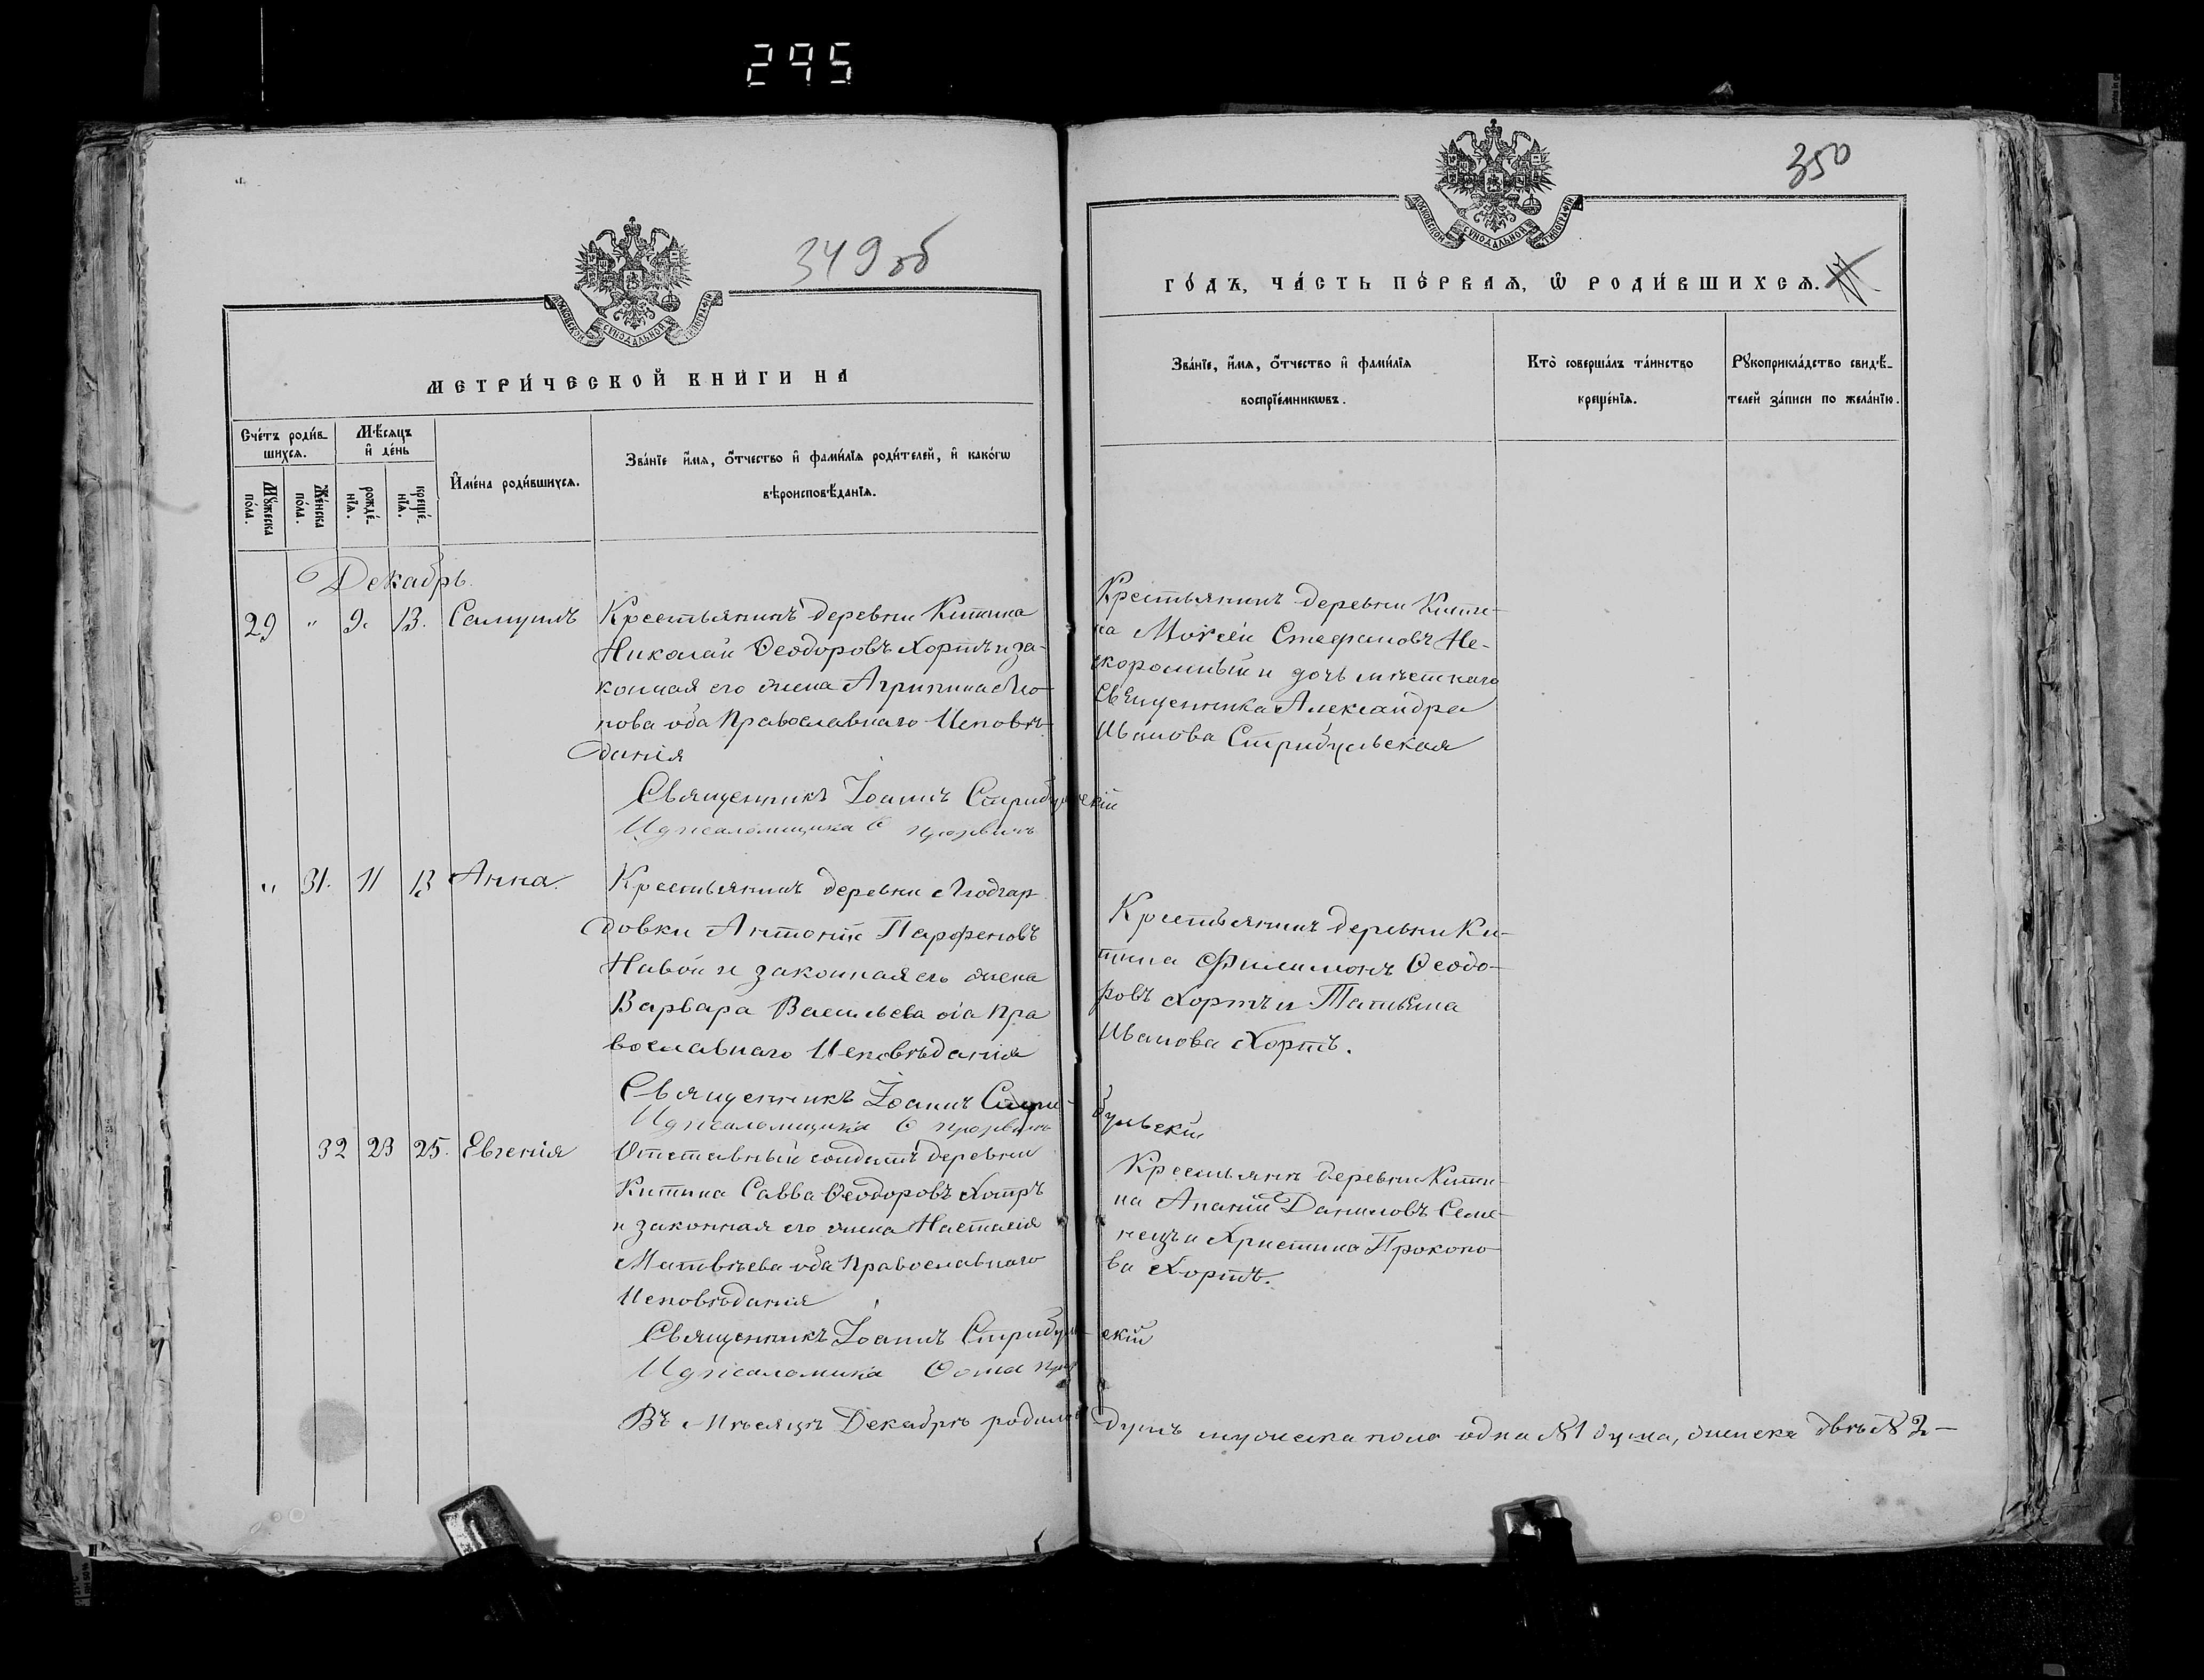 295
349об
МЕТРИ́ЧЕСКОЙ КНИ́ГИ НА
Сче́тъ роди́в-
шихсѧ.
Мѣ́сѧцъ
и҆ де́нь
Мꙋ́жеска
по́ла.
Же́нска
по́ла.
рожде́-
нїѧ.
креще́-
нїѧ.
И҆мена̀ роди́вшихсѧ.
Зва́нїе и҆́мѧ, ѻ҆́тчество и҆ фами́лїѧ роди́телей, и҆ како́гѡ
вѣроисповѣ́данїѧ.
МОСКОВСКОЙ СѴНОДАЛЬНОЙ ТИПОГРАФІИ
Декабрь.
29 " 9. 13. Самуилъ
Крестьянинъ деревни Китина
Николай Ѳеодоровъ Хортъ и за-
конная его жена Агрипина
нова оба Православнаго Исповѣ-
данія
Священникъ Іоаннъ Стрибульскій
И д псаломщика Ѳ
" 31. 11 13 Анна.
Крестьянинъ деревни
довки Антоній Парфеновъ
Навой и законная его жена
Варвара Васильева оба Пра
вославнаго Исповѣданія
Священникъ Іоаннъ Стри-бульскій
И д псаломщика Ѳ
32 23 25. Евгенія
Отставный солдатъ деревни
Китина Савва Ѳеодоровъ Хотръ
и законная его жена Настасія
Матвѣева оба Православнаго
Исповѣданія
Священникъ Іоаннъ Стрибульскій
И д псаломика Ѳома
Въ Мѣсяцѣ Декабрѣ родилось душъ мужеска пола одна №1 душа, женска двѣ № 2 —
350
МОСКОВСКОЙ СѴНОДАЛЬНОЙ ТИПОГРАФІИ
ГО́ДЪ, ЧА́СТЬ ПЕ́РВАѦ, Ѡ҆ РОДИ́ВШИХСѦ.
Зва́нїе, и҆́мѧ, ѻ҆́тчество и҆ фами́лїѧ
воспрїе́мникѡвъ.
Кто̀ соверша́лъ та́инство
креще́нїѧ.
Рꙋкоприкла́дство свидѣ́-
телей за́писи по жела́нїю.
Крестьянинъ деревни Кити-
на Моисей Стефановъ Не-
скоромный и дочь мѣстнаго
Священника Александра
Иванова Стрибульская
Крестьянинъ деревни Ки-
тина Филимонъ Ѳеодо-
ровъ Хортъ и Татьяна
Иванова Хортъ.
Крестьянъ деревни Кити-
на Ананій Даниловъ Семе-
нецъ и Христина Прокопо-
ва Хортъ.